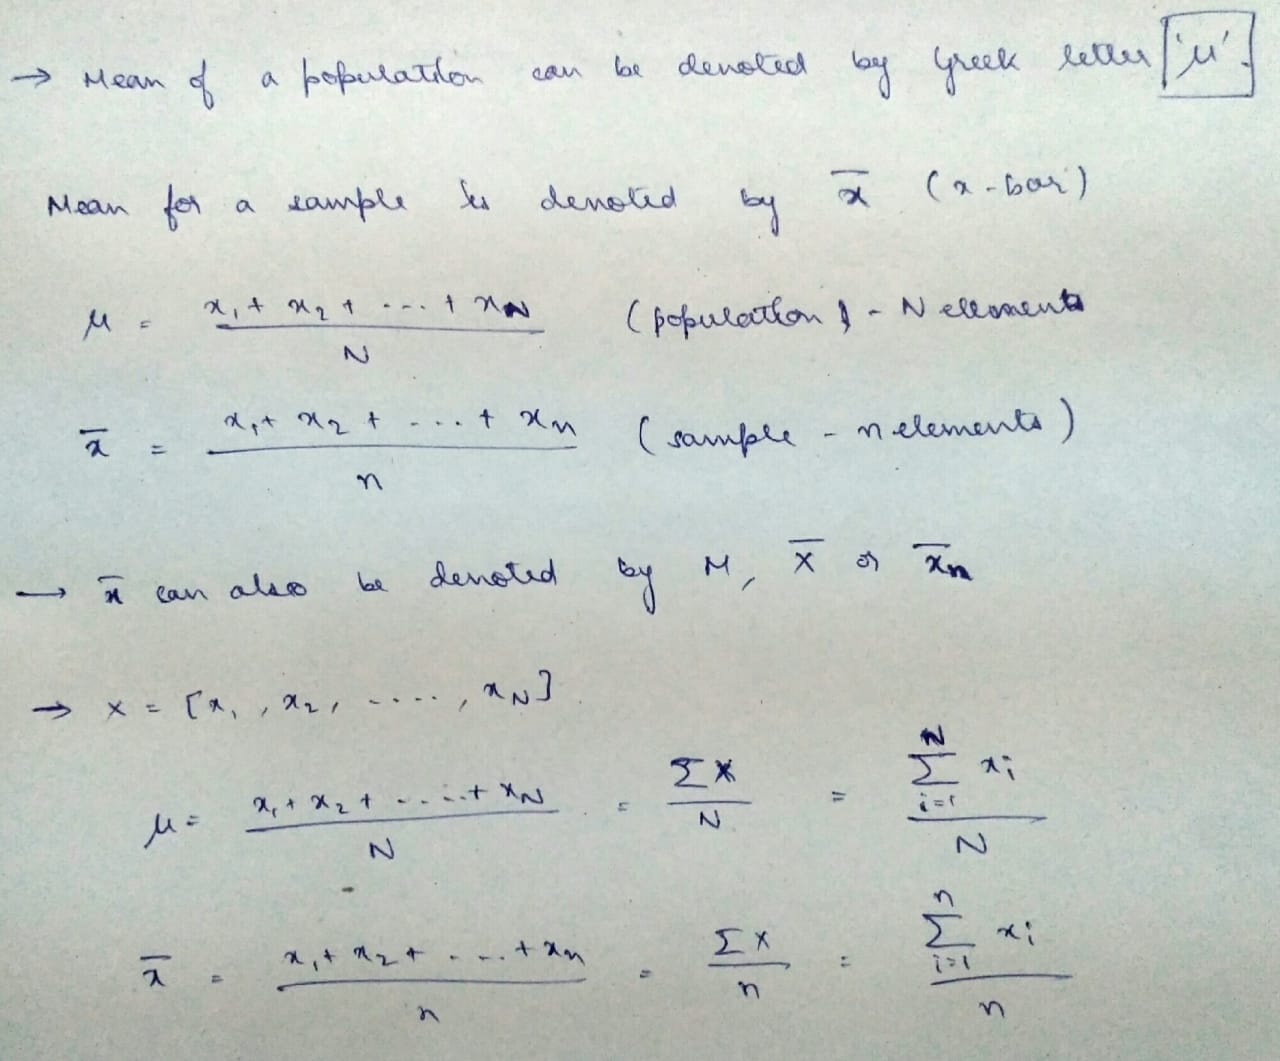 → Mean of a population can be denoted by Greek letter 'μ'.
Mean for a sample is denoted by x̄ (x-bar)
μ = (x₁ + x₂ + ... + x_N) / N (population) - N elements
x̄ = (x₁ + x₂ + .... + x_n) / n (sample - n elements)
→ x̄ can also be denoted by M, X̄ or x̄_n
→ X = [x₁, x₂, ....., x_N]
μ = (x₁ + x₂ + ..... + x_N) / N = ΣX / N = Σ_{i=1}^{N} x_i / N
x̄ = (x₁ + x₂ + ..... + x_n) / n = ΣX / n = Σ_{i=1}^{n} x_i / n